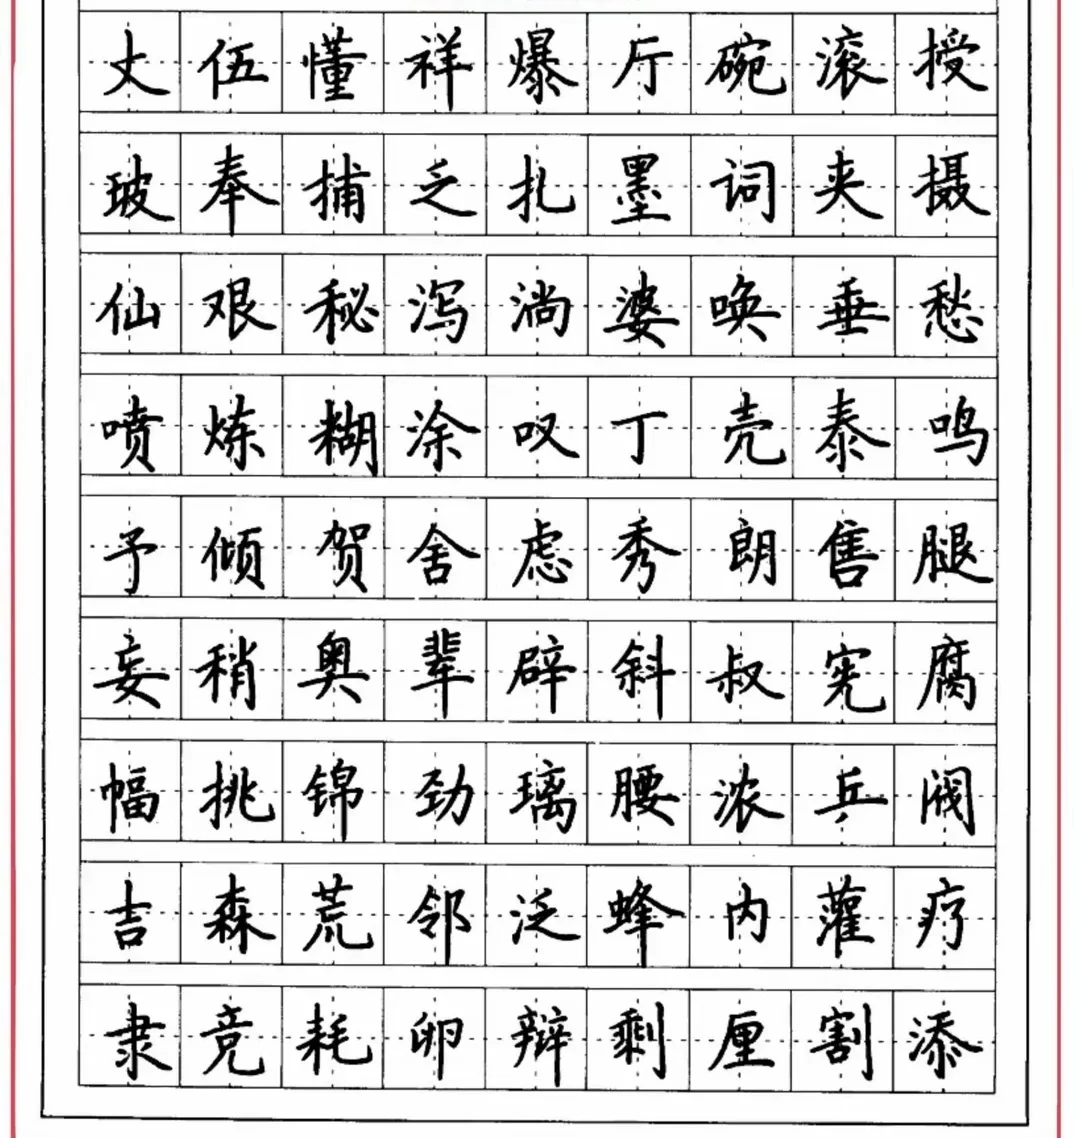 丈伍懂祥爆厅碗滚授
玻奉捕乏扎墨词夹摄
仙艰秘泻淌婆唤垂愁
喷炼糊涂叹丁壳泰鸣
予倾贺舍虑秀朗售腿
妄稍奥辈辟斜叔宪腐
幅挑锦劲璃腰浓乒阀
吉森荒邻泛蜂内灌疗
隶竞耗卵辩剩厘割添